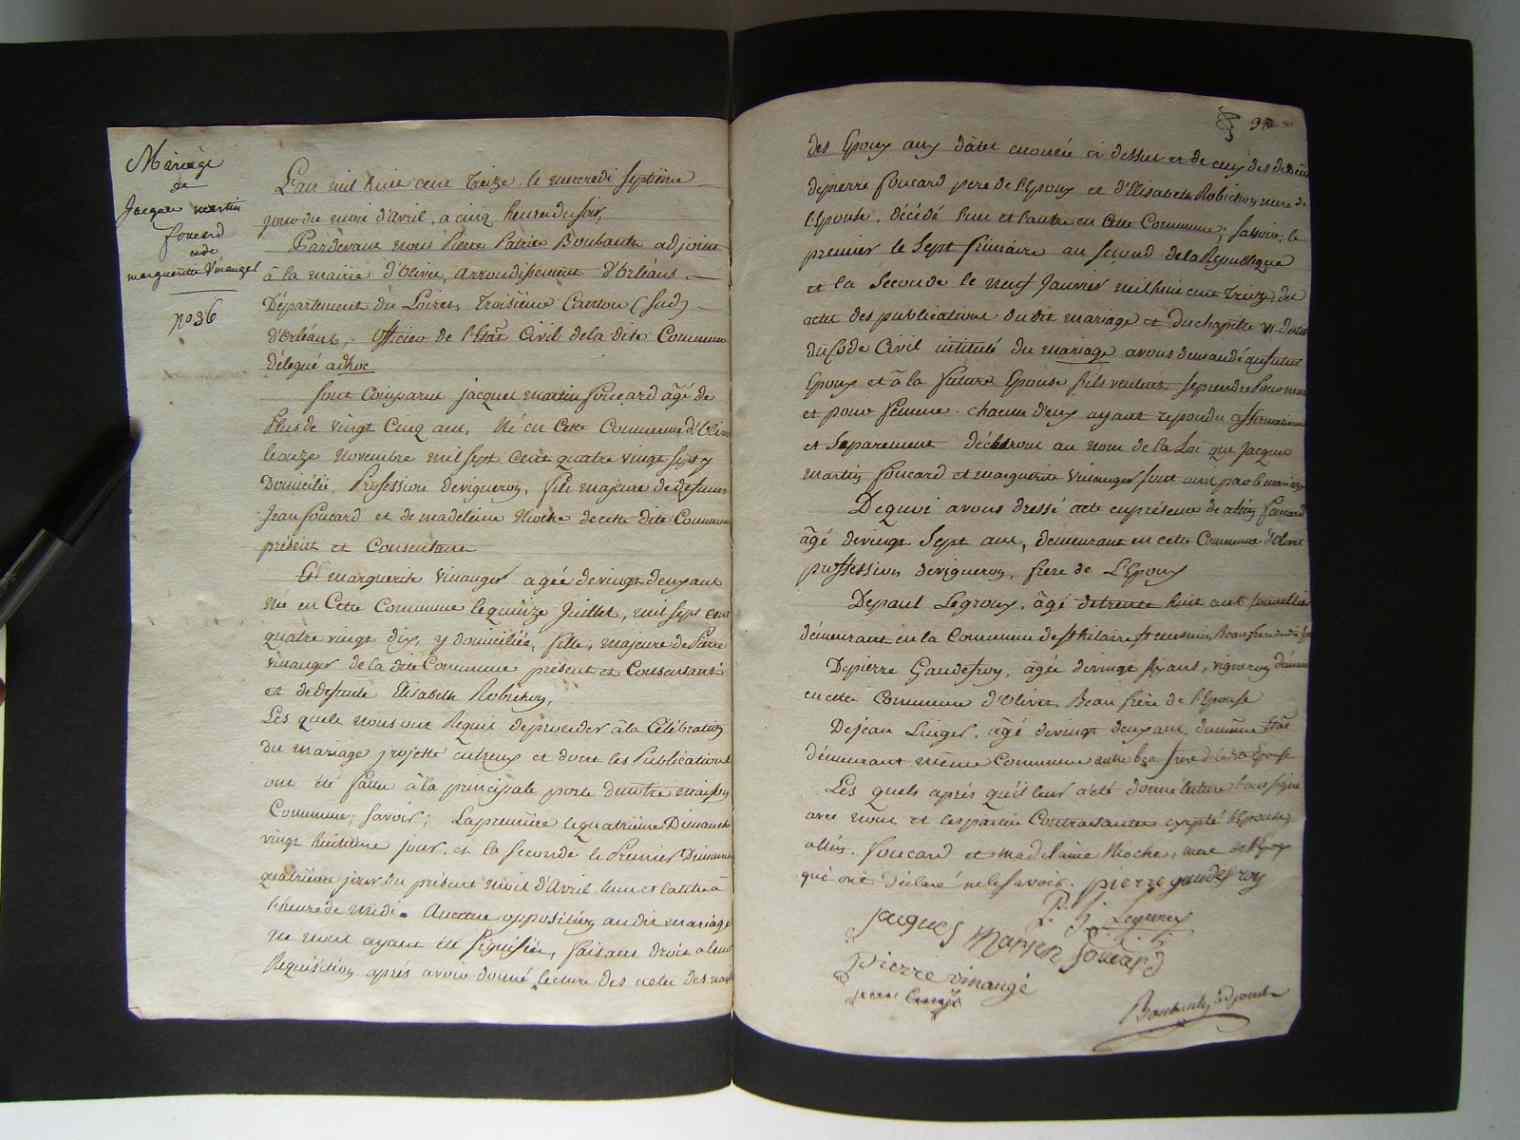 Mariage
de
Jacques martin
foucard
et de
marguerite Vinauger
no 36
L'an mil huit cent treize, le mercredi septième
jour du mois d'avril, a cinq heures du soir,
Pardevant nous Pierre Patrice Boubault adjoint
à la mairie d'Olivet, arrondissement d'Orléans.
Département du Loiret, troisième Canton (sud)
d'orléans, officier de l'état Civil dela dite Commune
délegué adhoc
sont comparus jacques martin foucard âgé de
plus de vingt cinq ans, Né en cette Commune d'Olivet
le onze Novembre mil sept cent quatre vingt sept y
Domicilié, Profession devigneron, fils majeur de defunt
Jean foucard et de madeleine Rioche de cette dite Commune
présent et Consentante
Et marguerite vinauger agée devingt deux ans
née en Cette Commune le quinze Juillet, mil sept cent
quatre vingt dix, y domiciliée, fille, majeure de Pierre
vinauger de la dite Commune présent et Consentant
et de defunte Elisabeth Robichon,
Les quels nous ont Requis deproceder à la Célébration
du mariage projetté entreux et dont les Publications
ont été faites à la principale porte de notre maison
Commune, savoir; La première le quatrième Dimanche
vingt huitième jour, et la seconde le Premier Dimanche
quatrième jour du présent mois d'Avril l'une et l'autre à
l'heure de midi. Aucune opposition au dit mariage
ne nous ayant été signifiée, faisant droit a leur
Requisition, après avoir donné lecture des actes des nais
des Epoux aux dâtes enoncée ci dessus et de ceux des deces
depierre foucard pere de l'Epoux et d'Elisabeth Robichon mere de
l'Epouse, décédé l'un et l'autre en cette Commune; savoir, le
premier le Sept frimaire an second dela Republique
et la Seconde le neuf Janvier mil huit cent treize, des
actes des publications du dit mariage et du chapitre VI
du Code Civil intitulé du mariage avons demandé au futur
Epoux et à la future Epouse s'ils veulent se prendre Pour mari
et pour femme. chacun d'eux ayant repondu affirmativement
et Séparement déclarons au nom de la Loi que Jacques
martin foucard et marguerite vinauger sont unis par le mariage
De quoi avons dressé acte en présence de foucard
âgé devingt Sept ans, demeurant en cette Commune d'Olivet
proffession devigneron, frère de L'Epoux
De paul Legroux, âgé detrente huit ans
démeurant en la Commune de st hilaire st mesmin, Beau frere
De pierre Gaudefroy, âgée devingt six ans, vigneron
en cette Commune d'Olivet Beau frère de l'Epouse
De jean Luiger, âgé devingt deux ans, du même état
démeurant même Commune
Les quels après qu'il leur a été donné lecture ont signé
avec nous et les parties Contractantes excepté l'Epouse,
foucard et madelaine Rioche, mere de l'Epoux
qui ont déclaré ne le savoir. pierre gaudefroy
Legroux
jacques martin foucard
pierre vinaugé
Boubault adjoint